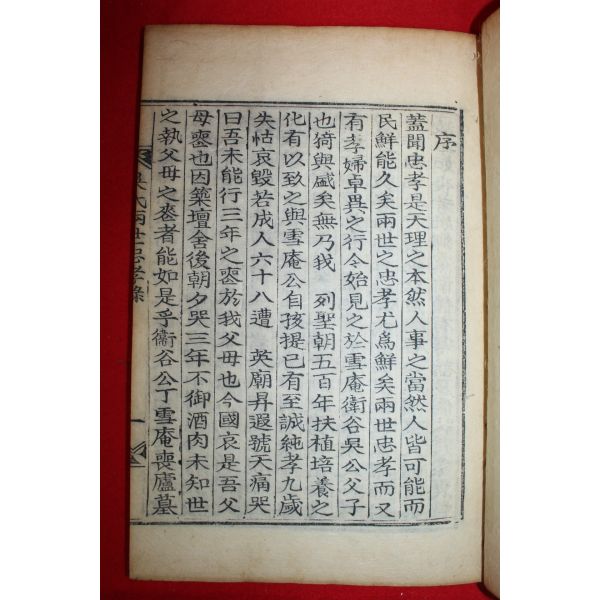 序
蓋聞忠孝是天理之本然人事之當然人皆可能而
民鮮能久矣兩世之忠孝尤爲鮮矣兩世忠孝而又
有孝婦卓異之行今始見之於雪庵衛谷吳公父子
也猗與盛矣無乃我 列聖朝五百年扶植培養之
化有以致之與雪庵公自孩提已有至誠純孝九歲
失怙哀毀若成人六十八遭 英廟昇遐號天痛哭
曰吾未能行三年之喪於我父母也今國哀是吾父
母喪也因築壇舍後朝夕哭三年不御酒肉未知世
之執父母之喪者能如是乎衛谷公丁雪庵喪廬墓
吳氏兩世忠孝錄
一